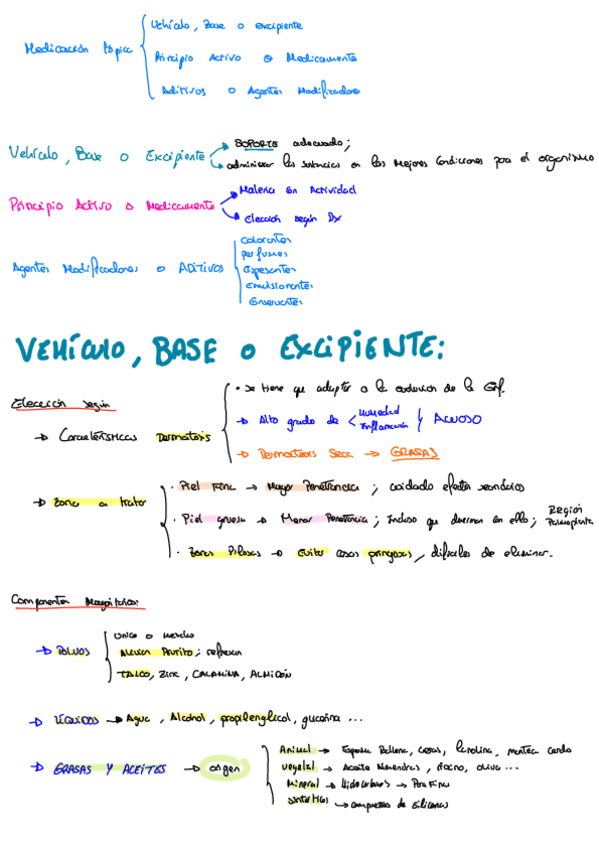 Vehículo, Base o excipiente
Medicación tópica
Principio Activo o Medicamento
Aditivos o Agentes Modificadores
SOPORTE adecuado;
Vehículo, Base o Excipiente
administrar las sustancias en las mejores condiciones para el organismo
Materia en Actividad
Principio Activo o Medicamento
Elección según Dx
Colorantes
perfumes
Agentes Modificadores o Aditivos
Espesantes
Emulsionantes
Conservantes
VEHÍCULO, BASE o EXCIPIENTE:
Elección según
• Se tiene que adaptar a la evolución de la Enf.
→ Alto grado de < Humedad Inflamación } Acuoso
→ Características Dermatosis
→ Dermatosis Seca → GRASAS
· Piel Fina → Mayor Penetrancia; cuidado efectos secundarios
→ Zona a tratar
· Piel gruesa → Menor Penetrancia; Incluso que duerman con ello; Región Palmoplantar
· Zonas Pilosas → Evitar cosas pringosas, difíciles de eliminar.
Componentes Mayoritarios:
Único o mezcla
→ POLVOS
Alivian Prurito; refrescan
TALCO, Zinc, CALAMINA, ALMIDÓN
→ LÍQUIDOS → Agua, Alcohol, propilenglicol, glicerina ...
→ GRASAS Y ACEITES → origen
Animal → Esperma Ballena, ceras, lanolina, manteca cerdo
vegetal → Aceite Almendras, ricino, oliva ...
Mineral → Hidrocarburos → Parafina
sintéticos → compuestos de siliconas